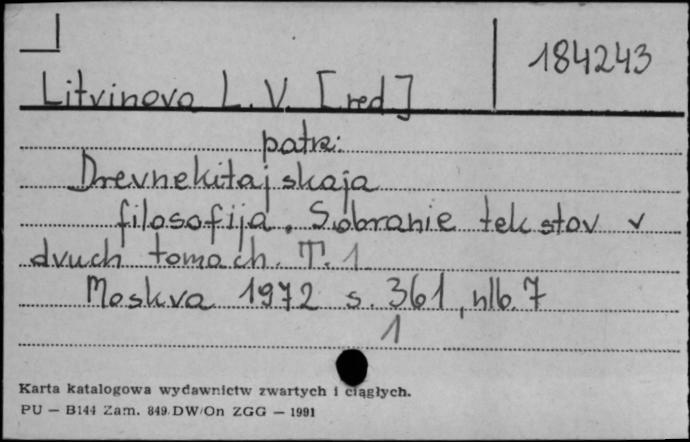 184243
Litvinova L. V. [red]
patrz:
Drevnekitajskaja
filosofija. Sobranie tekstov v
dvuch tomach. T. 1
Moskva 1972 s. 361, nlb. 7
1
Karta katalogowa wydawnictw zwartych i ciągłych.
PU — B144 Zam. 849 DW/On ZGG — 1991